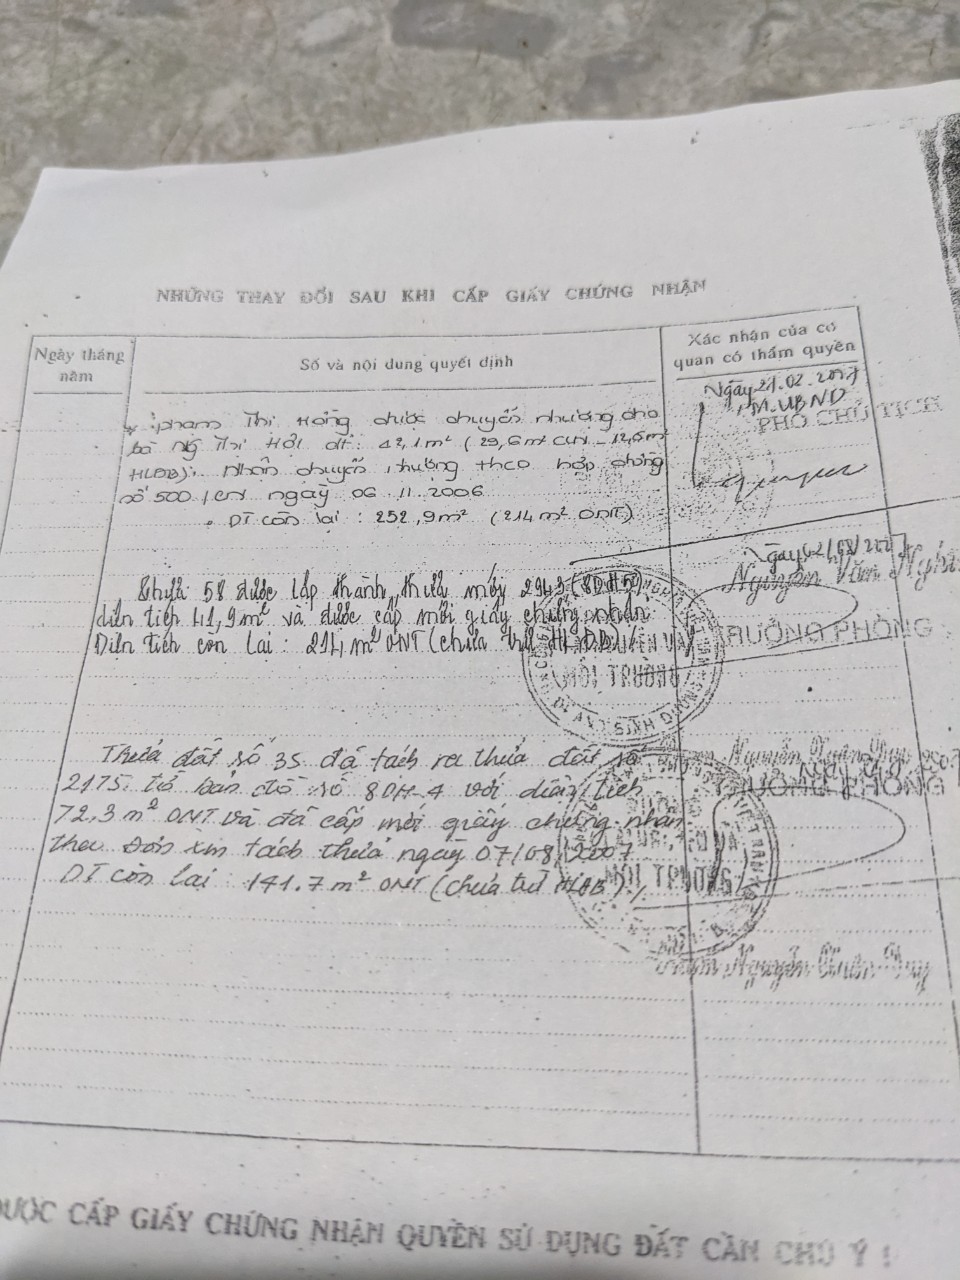 NHỮNG THAY ĐỔI SAU KHI CẤP GIẤY CHỨNG NHẬN
Ngày tháng năm
Số và nội dung quyết định
Xác nhận của cơ quan có thẩm quyền
Phạm Thị Hồng được chuyển nhượng cho
bà Ng Thị Hội dt: 42,1m² (29,6m² CLN - 12,5m²
HLĐB). Nhận chuyển nhượng theo hợp đồng
số 500/CN ngày 06.11.2006
DT còn lại: 252,9m² (214m² ONT)
Ngày 27.02.2007
TM.UBND
PHÓ CHỦ TỊCH
Thửa 58 được lập thành thửa mới 2943 (8DH5)
diện tích 41,9m² và được cấp mới giấy chứng nhận
Diện tích còn lại: 214m² ONT (chưa trừ HLĐB)
Nguyễn Văn
TRƯỞNG PHÒNG
MÔI TRƯỜNG
Thửa đất số 35 đã tách ra thửa đất số
2175, tờ bản đồ số 8DH-4 với diện tích
72,3m² ONT và đã cấp mới giấy chứng nhận
theo Đơn xin tách thửa ngày 07/08/2007
DT còn lại: 141.7m² ONT (chưa trừ HLĐB)./
TRƯỞNG PHÒNG
MÔI TRƯỜNG
Phạm Nguyễn Xuân Duy
ĐƯỢC CẤP GIẤY CHỨNG NHẬN QUYỀN SỬ DỤNG ĐẤT CẦN CHÚ Ý !